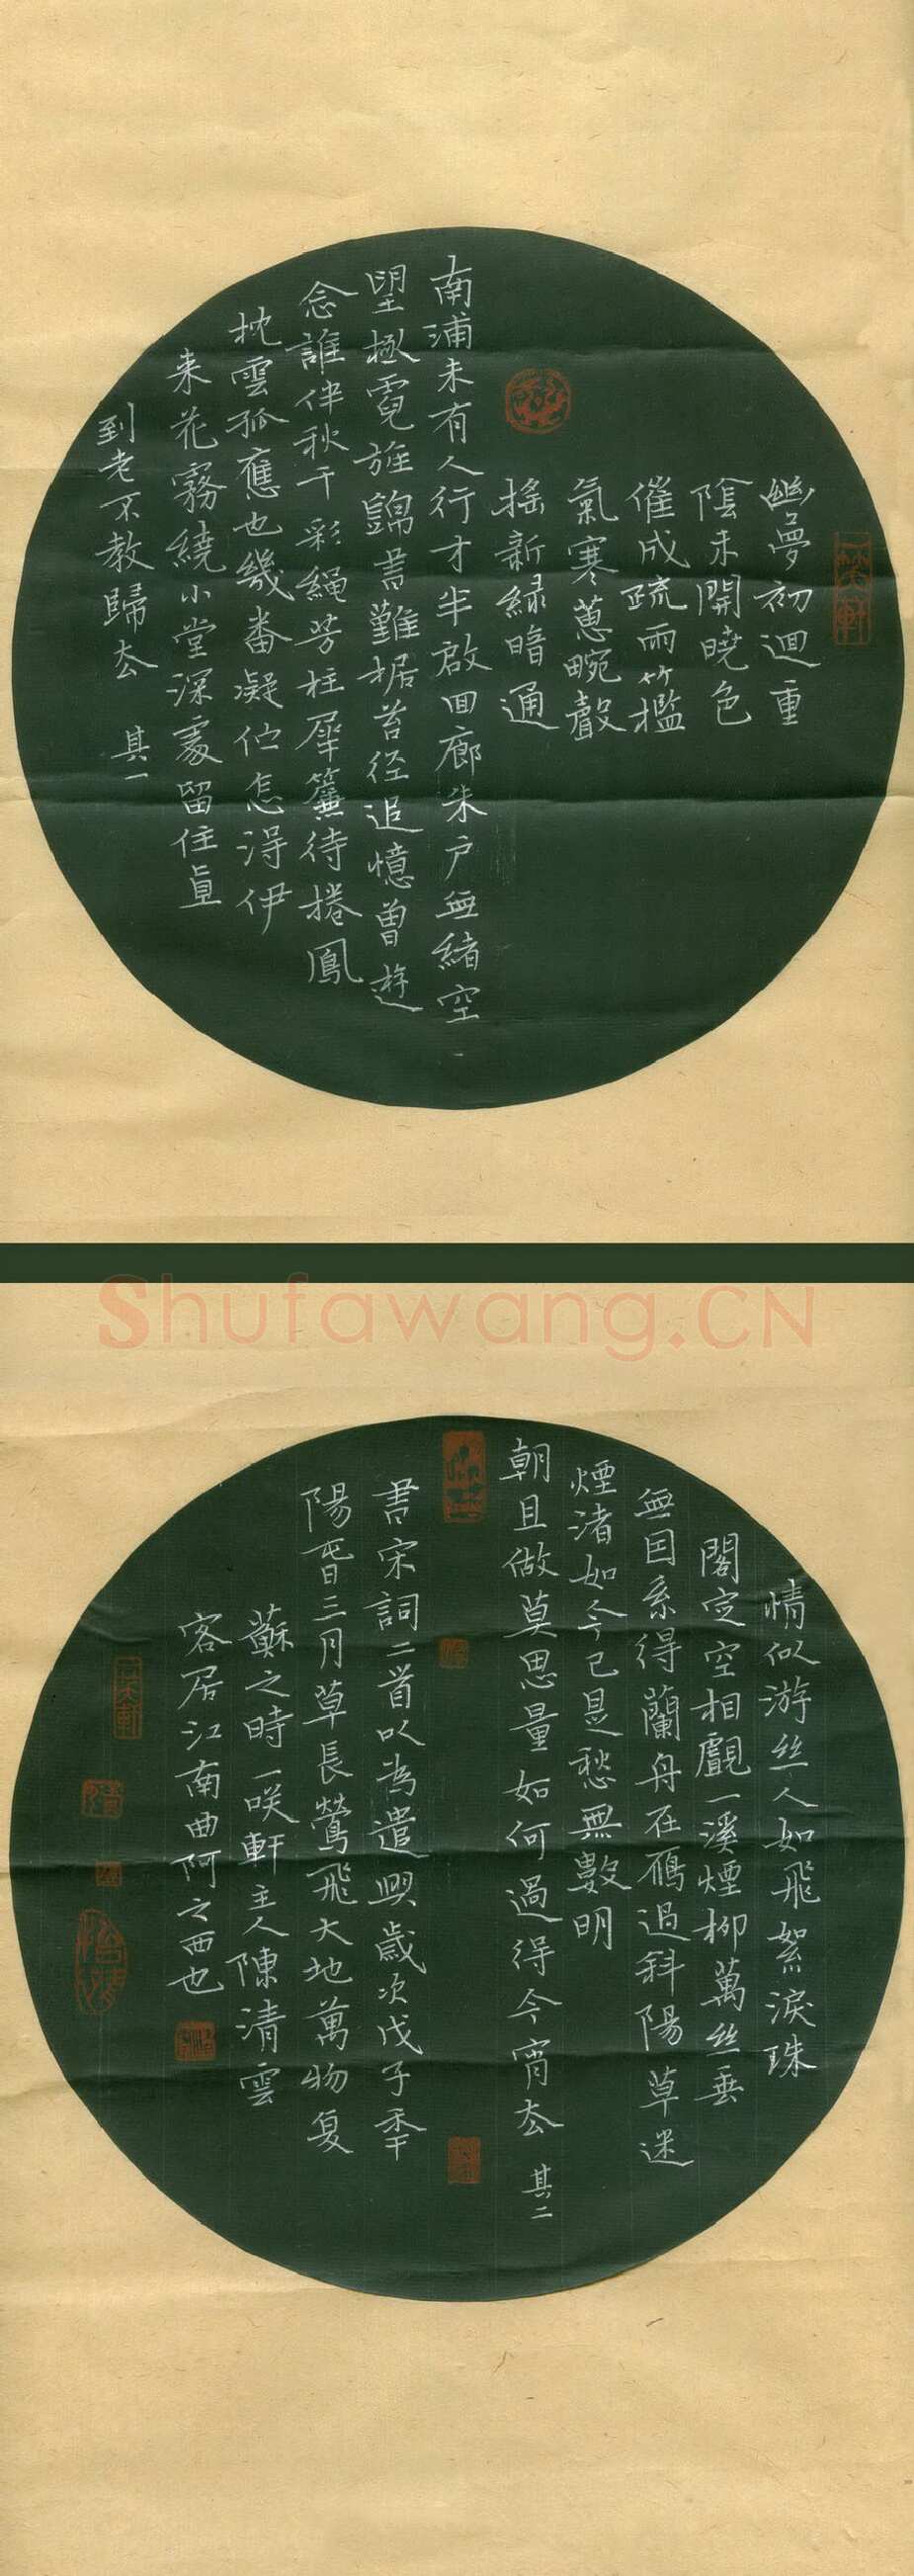 幽夢初迴重
陰未開曉色
催成疏雨竹檻
氣寒蕙畹聲
搖新綠暗通
南浦未有人行才半啟回廊朱户無緒空
望極霓旌錦書難据苔径追憶曾遊
念誰伴秋千彩繩芳柱犀簾待捲鳳
枕雲孤應也幾番凝伫怎得伊
来花霧繞小堂深處留住直
到老不教歸去
其一
Shufawang.CN
情似游丝人如飛絮淚珠
閣定空相覷一溪煙柳萬丝垂
無因系得蘭舟在雁過科陽草迷
煙渚如今已是愁無數明
朝且做莫思量如何過得今宵去
其二
書宋詞二首以為遣興歲次戊子季
陽春三月草長鶯飛大地萬物复
蘇之時一咲軒主人陳清雲
客居江南曲阿之西也